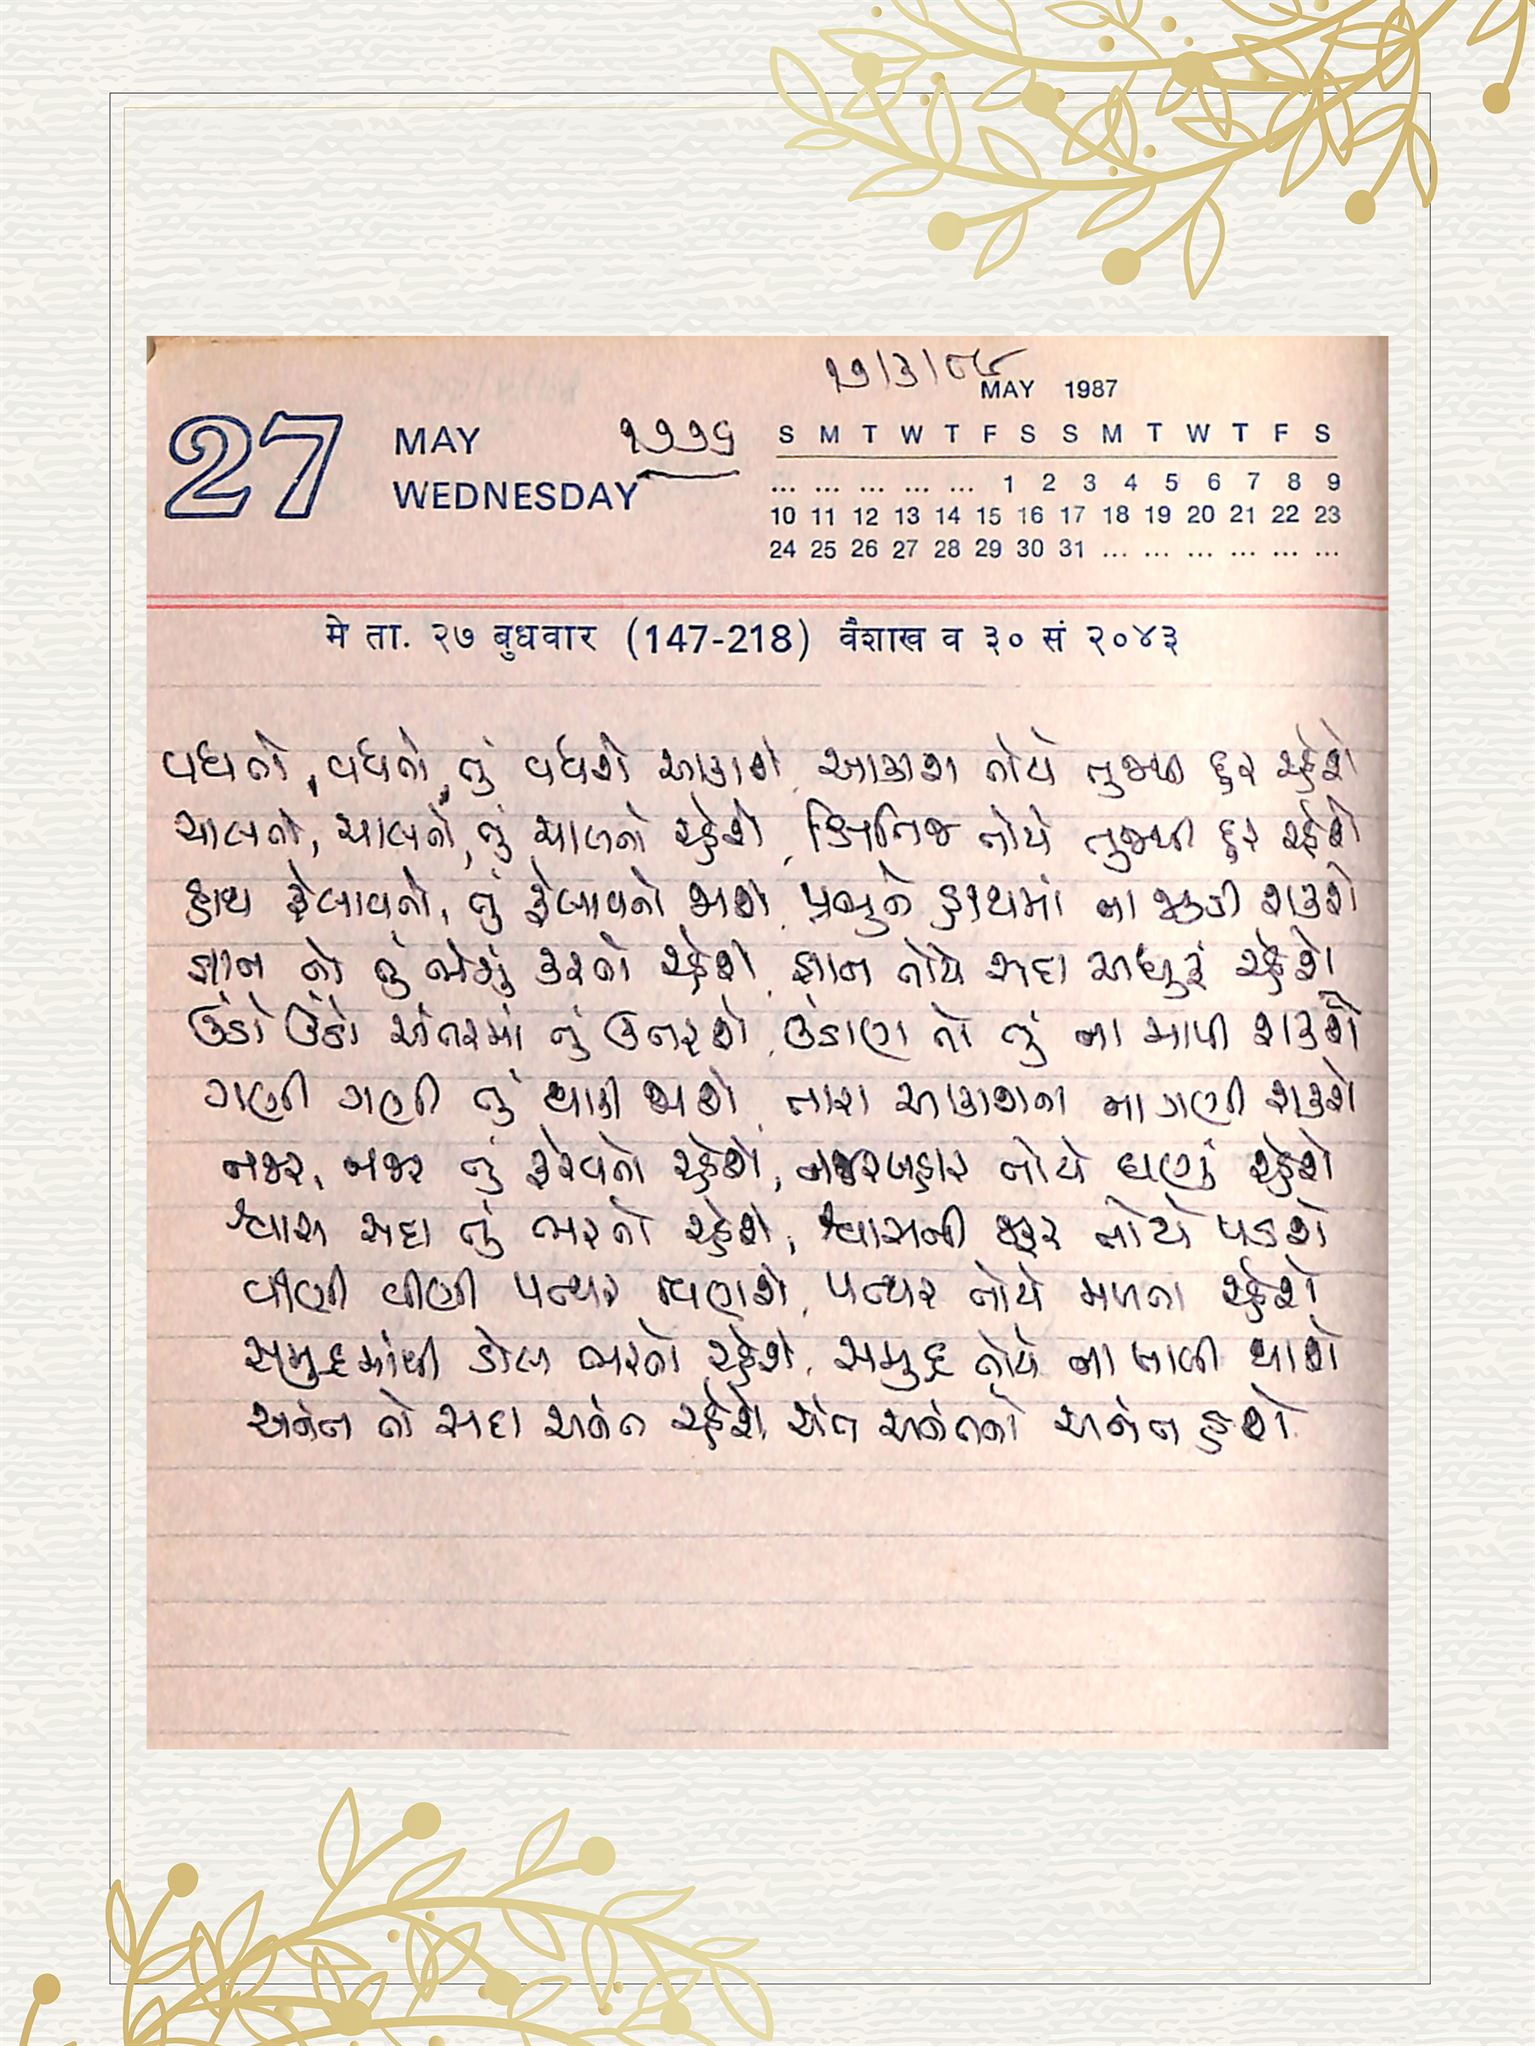 ૨૭/૩/૮૮
MAY 1987
27 MAY ૧૨૨૬ S M T W T F S S M T W T F S
WEDNESDAY
... ... ... ... ... 1 2 3 4 5 6 7 8 9
10 11 12 13 14 15 16 17 18 19 20 21 22 23
24 25 26 27 28 29 30 31 ... ... ... ... ... ...
मे ता. २७ बुधवार (147-218) वैशाख व ३० सं २०४३
વધતો, વધતો, તું વધશે આકાશે, આકાશ તોયે તુજથી દુર રહેશે
ચાલતો, ચાલતો, તું ચાલતો રહેશે, ક્ષિતિજ તોયે તુજથી દુર રહેશે
હાથ ફેલાવતો, તું ફેલાવતો જાશે, પ્રભુને હાથમાં ના જકડી શકશે
જ્ઞાન તો તું ભેગું કરતો રહેશે, જ્ઞાન તોયે સદા અધુરું રહેશે
ઉંડો ઉંડો અંતરમાં તું ઉતરશે, ઉંડાણ તો તું ના માપી શકશે
ગણી ગણી તું થાકી જાશે, તારા આકાશના ના ગણી શકશે
નજર, નજર તું ફેરવતો રહેશે, નજરબહાર તોયે ઘણું રહેશે
શ્વાસ સદા તું ભરતો રહેશે, શ્વાસની જરૂર તોયે પડશે
વીણી વીણી પથ્થર વિણશે, પથ્થર તોયે મળતા રહેશે
સમુદ્રમાંથી ડોલ ભરતો રહેશે, સમુદ્ર તોયે ના ખાલી થાશે
અનંત તો સદા અનંત રહેશે, અંત અનંતનો અનંત હશે.